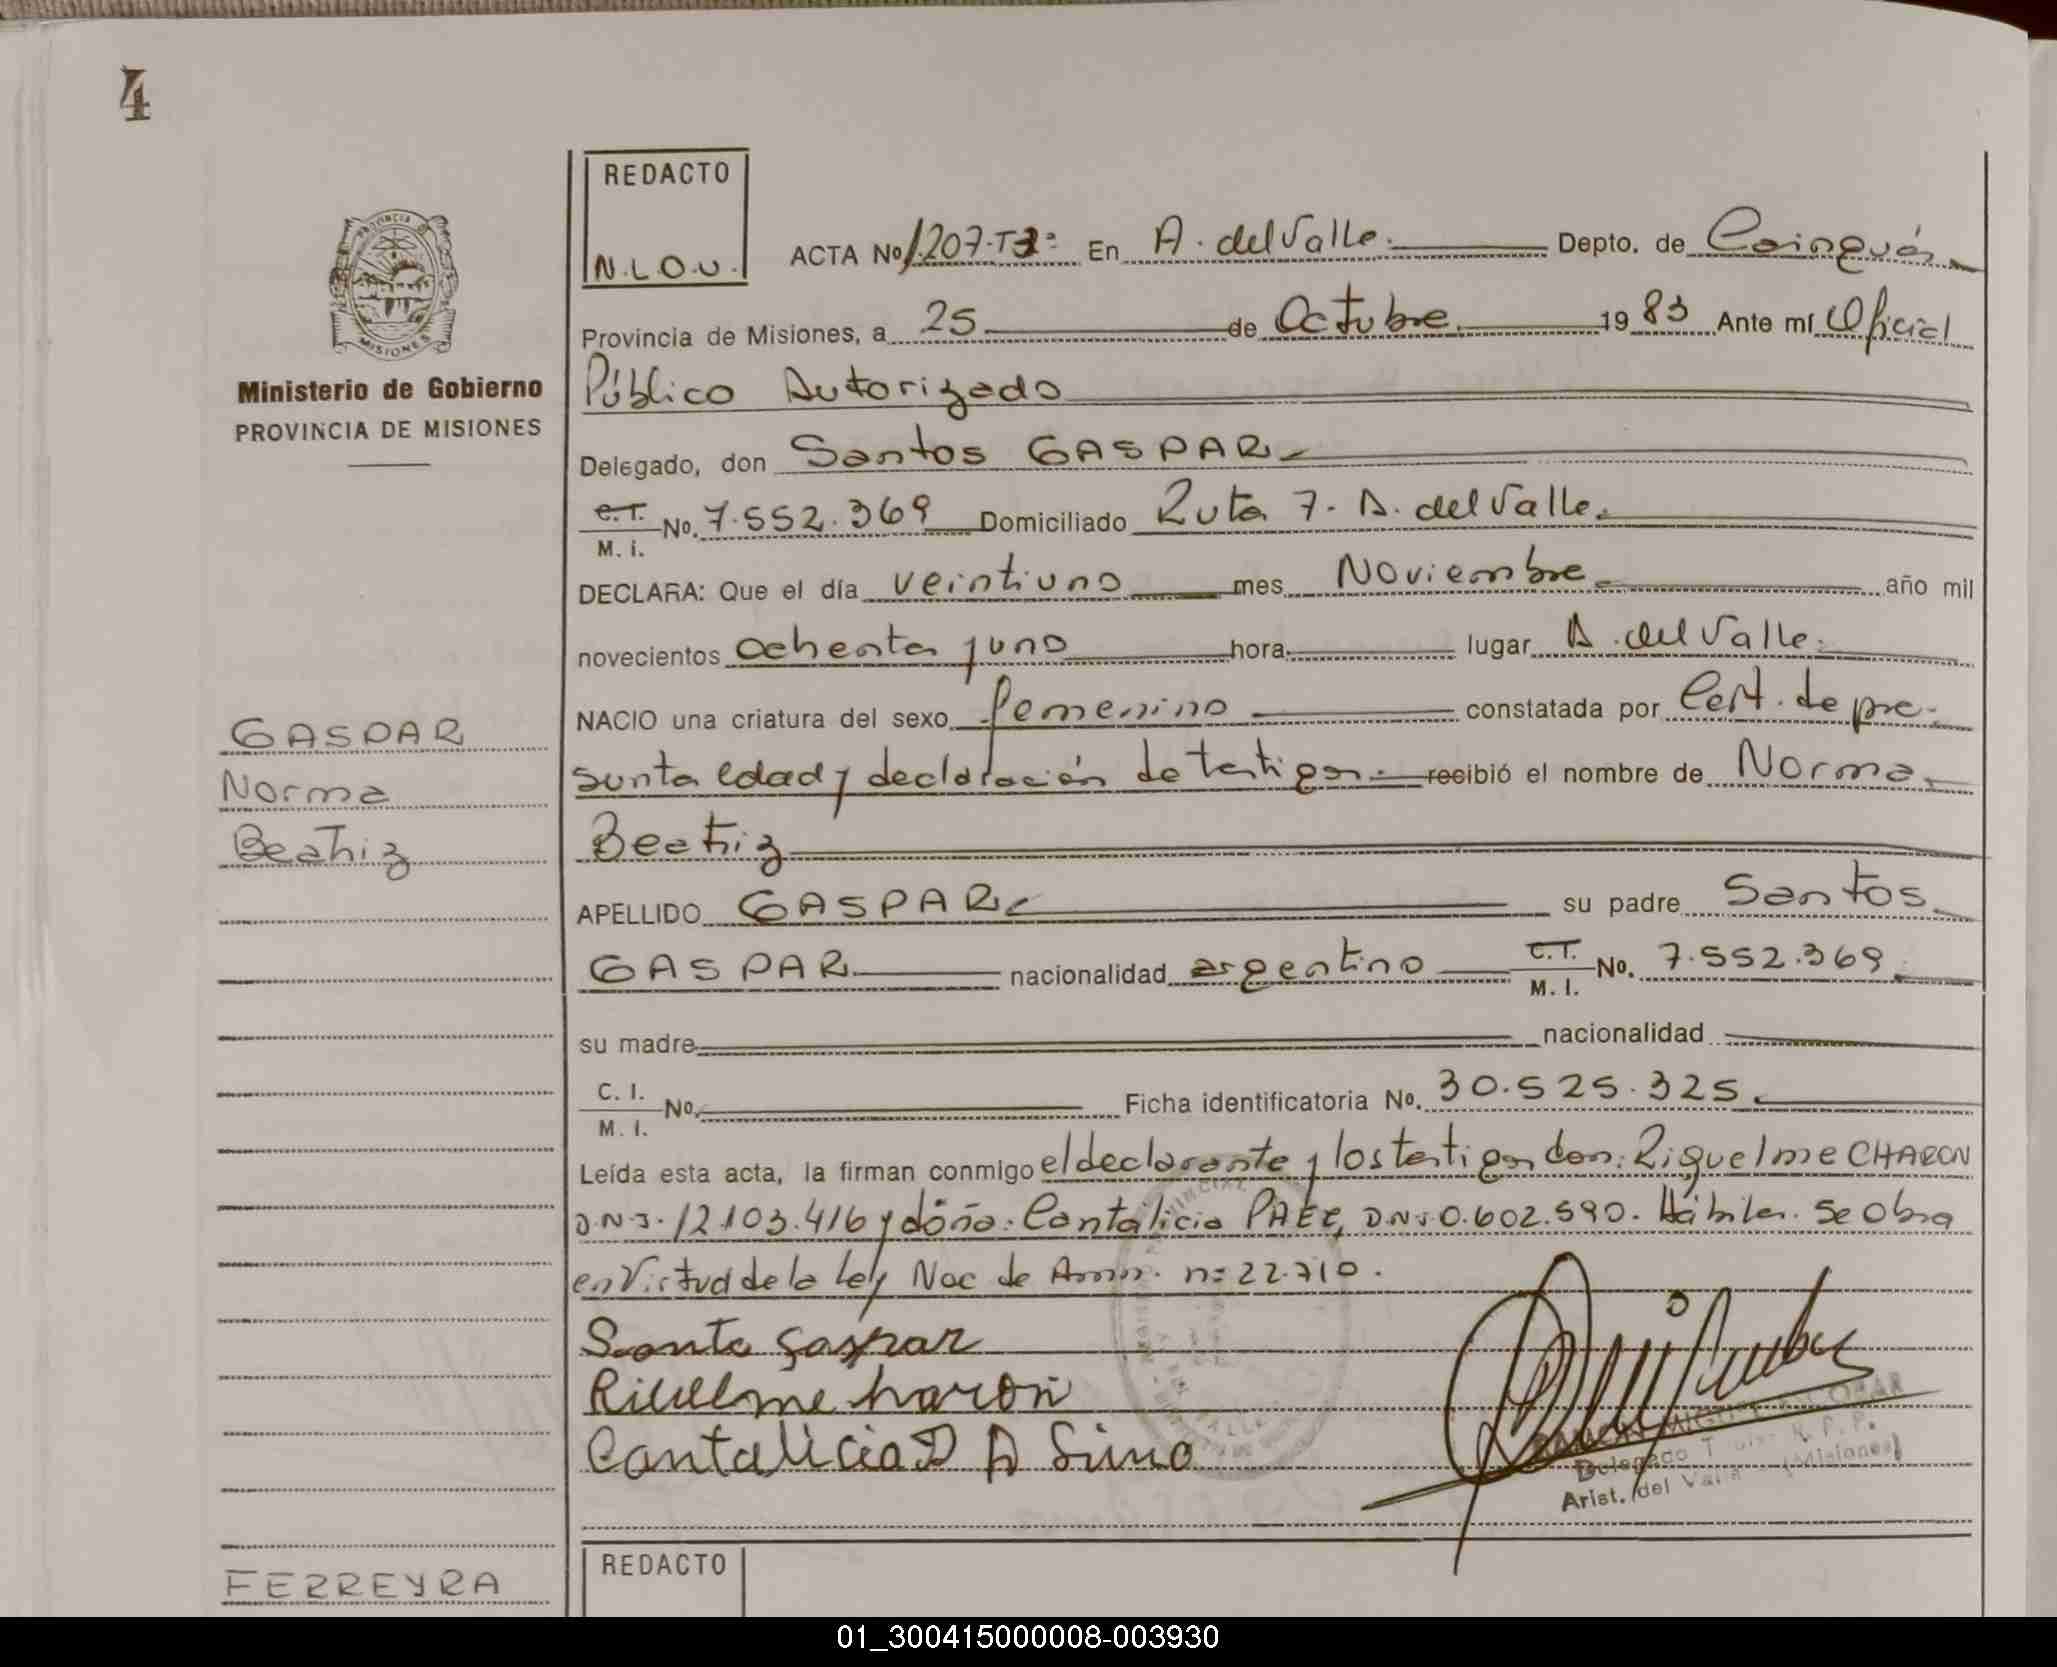 4
REDACTO
N.L.O.U.
ACTA No 1.207-T3º En A. del Valle. Depto. de Cainguás
Provincia de Misiones, a 25 de Octubre 1983 Ante mí Oficial
Público Autorizado
PROVINCIA
MISIONES
Ministerio de Gobierno
PROVINCIA DE MISIONES
Delegado, don Santos GASPAR
C.I. M. I. No. 7.552.369 Domiciliado Ruta 7. A. del Valle.
DECLARA: Que el día veintiuno mes Noviembre año mil
novecientos ochenta y uno hora lugar A. del Valle.
NACIO una criatura del sexo femenino constatada por Cert. de pre-
sunta edad y declaración de testigos. recibió el nombre de Norma
Beatriz
GASPAR
Norma
Beatriz
APELLIDO GASPAR su padre Santos
GASPAR nacionalidad argentino C.I. M. I. No. 7.552.369
su madre nacionalidad
C. I. M. I. No. Ficha identificatoria No. 30.525.325
Leída esta acta, la firman conmigo el declarante y los testigos don: Riquelme CHARON
D.N.I. 12.103.416 y doña: Cantalicia PAEZ, D.N.I. 0.602.590. Hábiles. Se obra
en virtud de la Ley Nac de Amn. nº 22.710.
Santo Gaspar
Cantalicia
RAMON MIGUEL ESCOBAR
Delegado R. P. P.
Arist. del Valle (Misiones)
REDACTO
FERREYRA
01_300415000008-003930